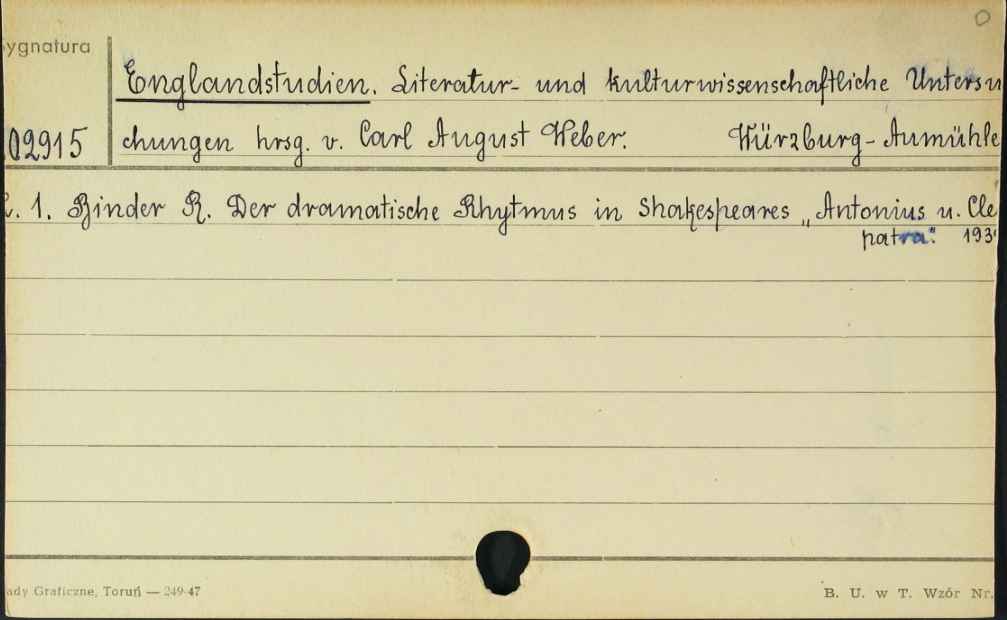 O
ygnatura
Englandstudien. Literatur- und kulturwissenschaftliche Untersu
02915 chungen hrsg. v. Carl August Weber. Würzburg-Aumühle
1. Binder R. Der dramatische Rhytmus in Shakespeares „Antonius u. Cle
patra". 193
ady Graficzne, Toruń — 249-47
B. U. w T. Wzór Nr.